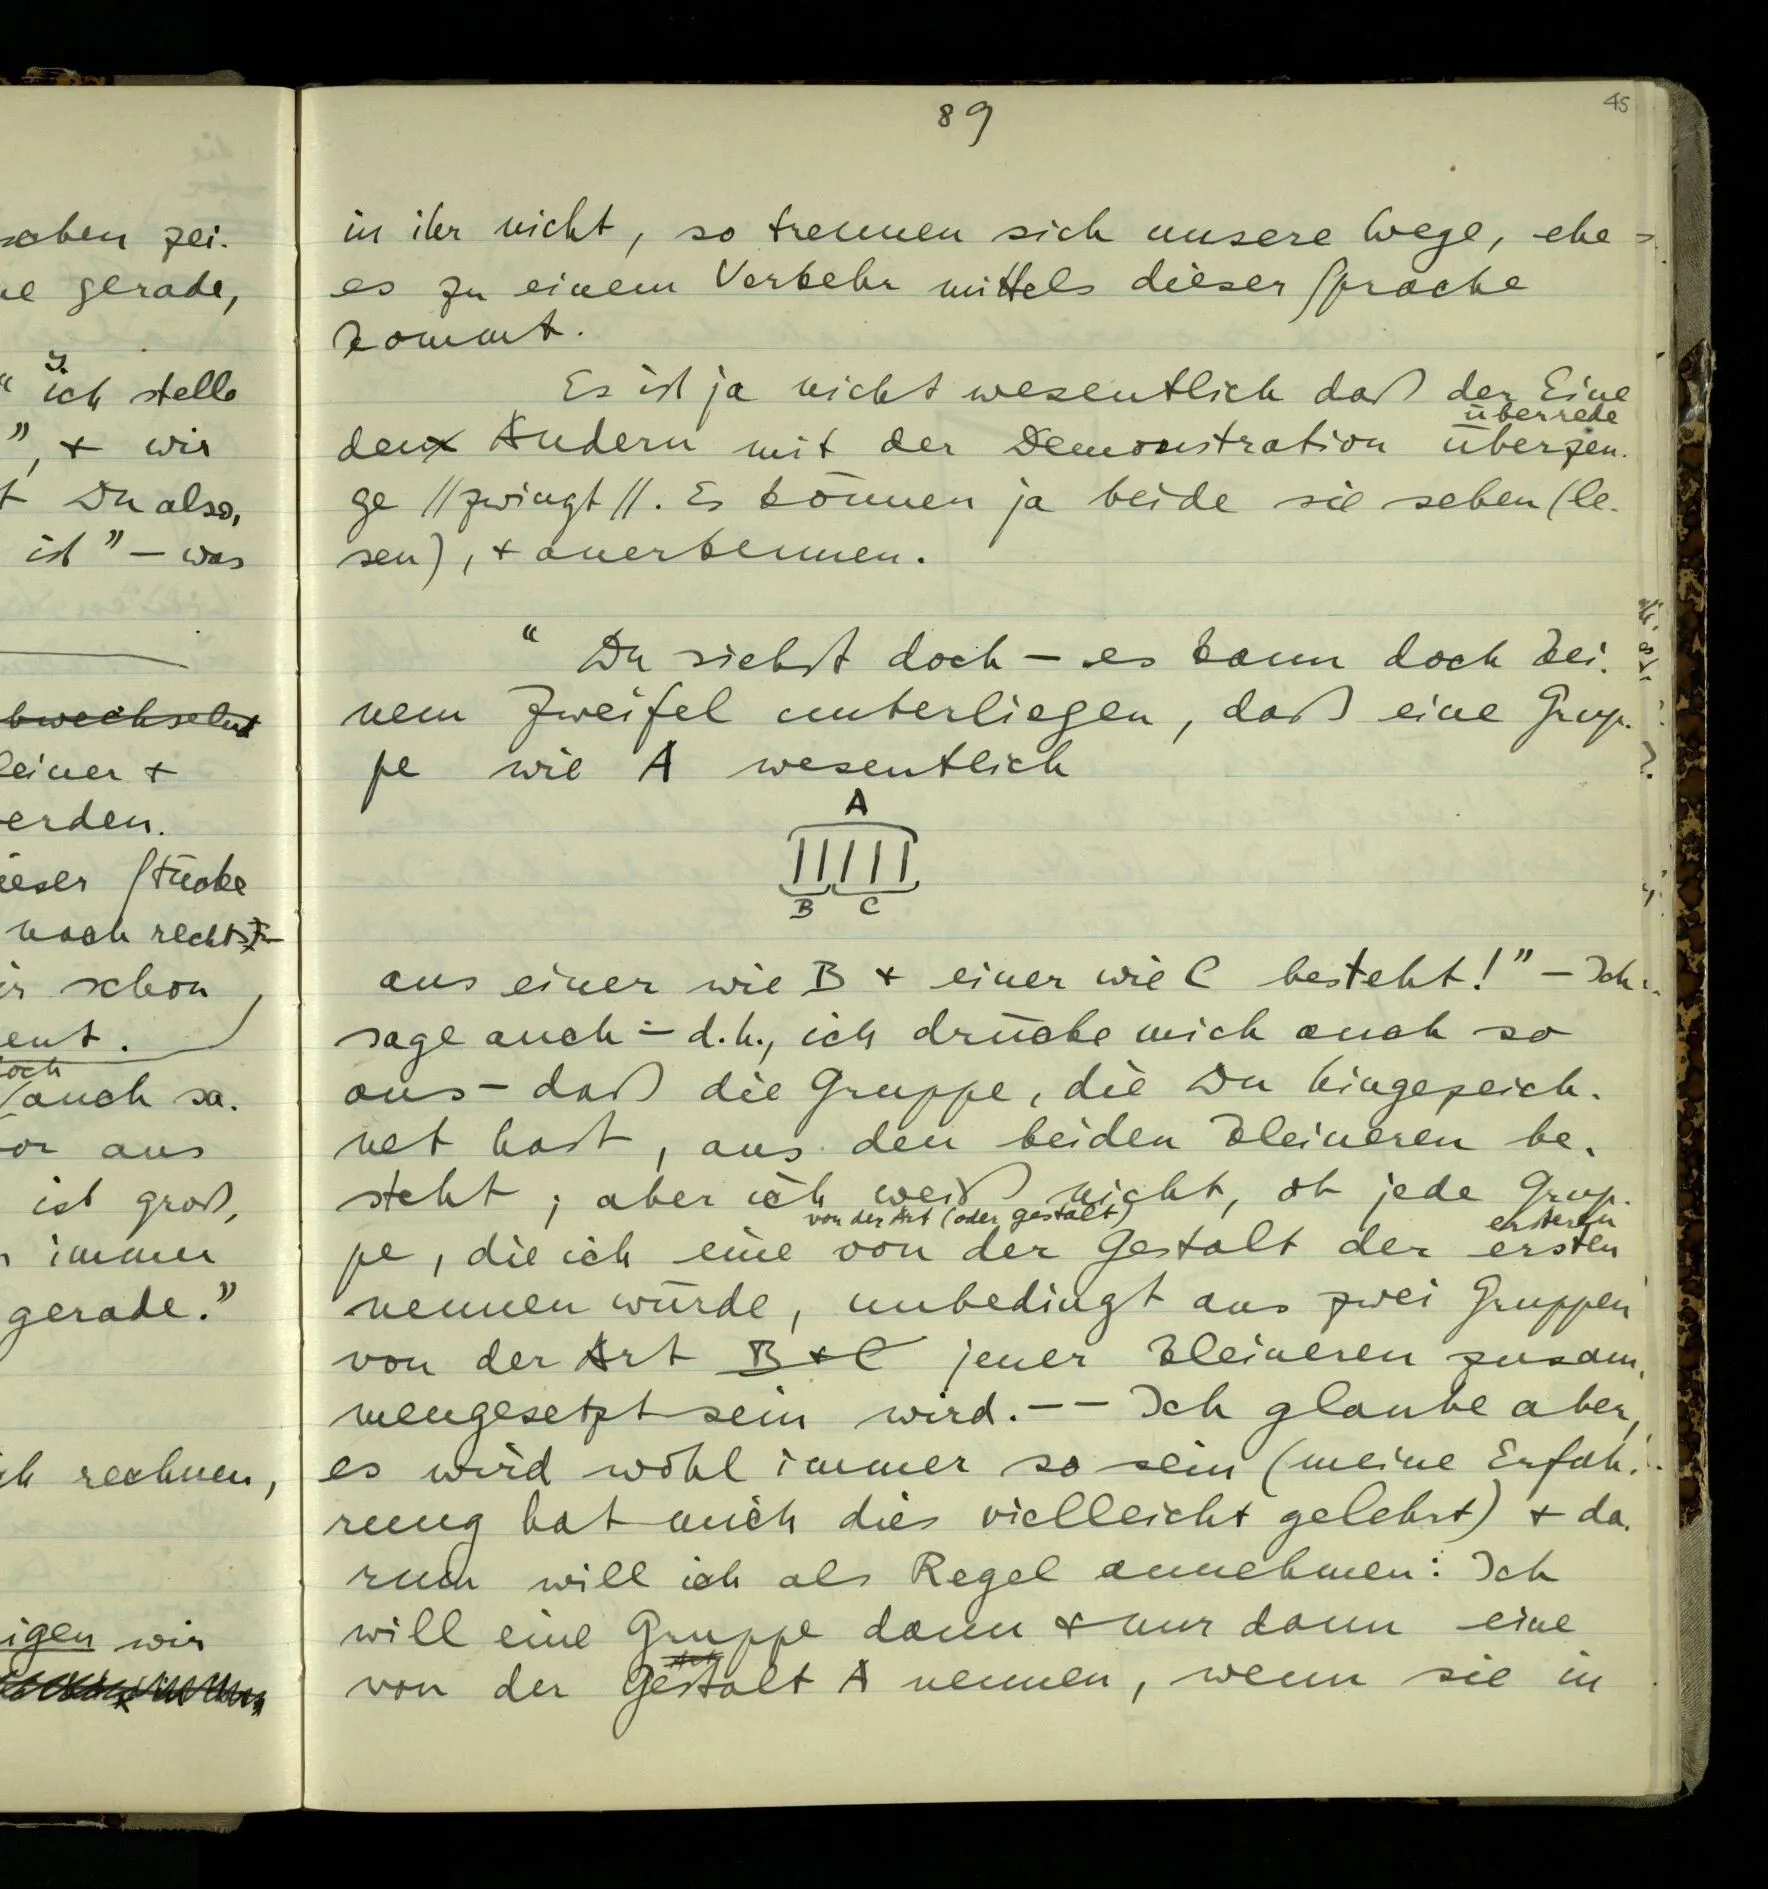 89
45
in ihr nicht, so trennen sich unsere Wege, ehe
es zu einem Verkehr mittels dieser Sprache
kommt.
Es ist ja nicht wesentlich daß der Eine
überrede
den Andern mit der Demonstration überzeu-
ge //zwingt//. Es können ja beide sie sehen (le-
sen), + anerkennen.
“Du siehst doch – es kann doch kei-
nem Zweifel unterliegen, daß eine Grup-
pe wie A wesentlich
A
B C
aus einer wie B + einer wie C besteht!” – Ich
sage auch – d.h., ich drücke mich auch so
aus – daß die Gruppe, die Du hingezeich-
net hast, aus den beiden kleineren be-
steht; aber ich weiß nicht, ob jede Grup-
von der Art (oder Gestalt) ersteren
pe, die ich eine von der Gestalt der ersten
nennen würde, unbedingt aus zwei Gruppen
von der Art B + C jener kleineren zusam-
mengesetzt sein wird. –– Ich glaube aber,
es wird wohl immer so sein (meine Erfah-
rung hat mich dies vielleicht gelehrt) + da-
rum will ich als Regel annehmen: Ich
will eine Gruppe dann + nur dann eine
Art
von der Gestalt A nennen, wenn sie in
schen zei-
ne gerade,
ich stelle
”, + wir
t Du also,
ist” – was
bwechselnd
leiner +
erden.
ieser Stücke
nach rechts
ir schon
ent.
och
auch sa-
or aus
ist groß,
immer
gerade.”
ch rechnen,
igen wir